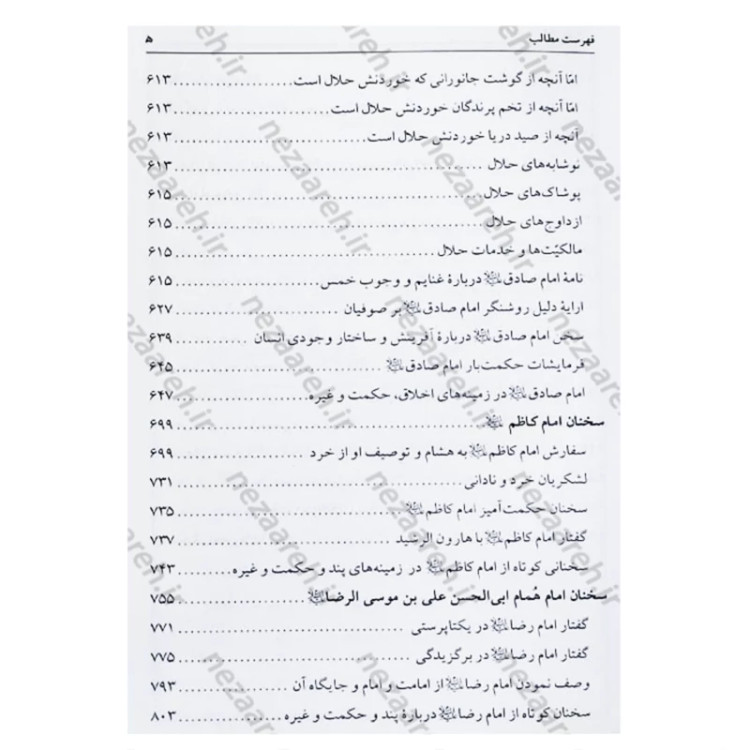 فهرست مطالب ۵
امّا آنچه از گوشت جانورانی که خوردنش حلال است ........ ۶۱۳
امّا آنچه از تخم پرندگان خوردنش حلال است ........ ۶۱۳
آنچه از صید دریا خوردنش حلال است ........ ۶۱۳
نوشابه‌های حلال ........ ۶۱۳
پوشاک‌های حلال ........ ۶۱۵
ازداوج‌های حلال ........ ۶۱۵
مالکیّت‌ها و خدمات حلال ........ ۶۱۵
نامهٔ امام صادق دربارهٔ غنایم و وجوب خمس ........ ۶۱۵
ارایهٔ دلیل روشنگر امام صادق بر صوفیان ........ ۶۲۷
سخن امام صادق دربارهٔ آفرینش و ساختار وجودی انسان ........ ۶۳۹
فرمایشات حکمت‌بار امام صادق ........ ۶۴۵
امام صادق در زمینه‌های اخلاق، حکمت و غیره ........ ۶۴۷
سخنان امام کاظم ........ ۶۹۹
سفارش امام کاظم به هشام و توصیف او از خرد ........ ۶۹۹
لشکریان خرد و نادانی ........ ۷۳۱
سخنان حکمت‌آمیز امام کاظم ........ ۷۳۵
گفتار امام کاظم با هارون الرشید ........ ۷۳۷
سخنانی کوتاه از امام کاظم در زمینه‌های پند و حکمت و غیره ........ ۷۴۳
سخنان امام هُمام ابی‌الحسن علی بن موسی الرضا ........ ۷۵۵
گفتار امام رضا در یکتاپرستی ........ ۷۷۱
گفتار امام رضا در برگزیدگی ........ ۷۷۵
وصف نمودن امام رضا از امامت و امام و جایگاه آن ........ ۷۹۳
سخنان کوتاه از امام رضا دربارهٔ پند و حکمت و غیره ........ ۸۰۳
nezaareh.ir